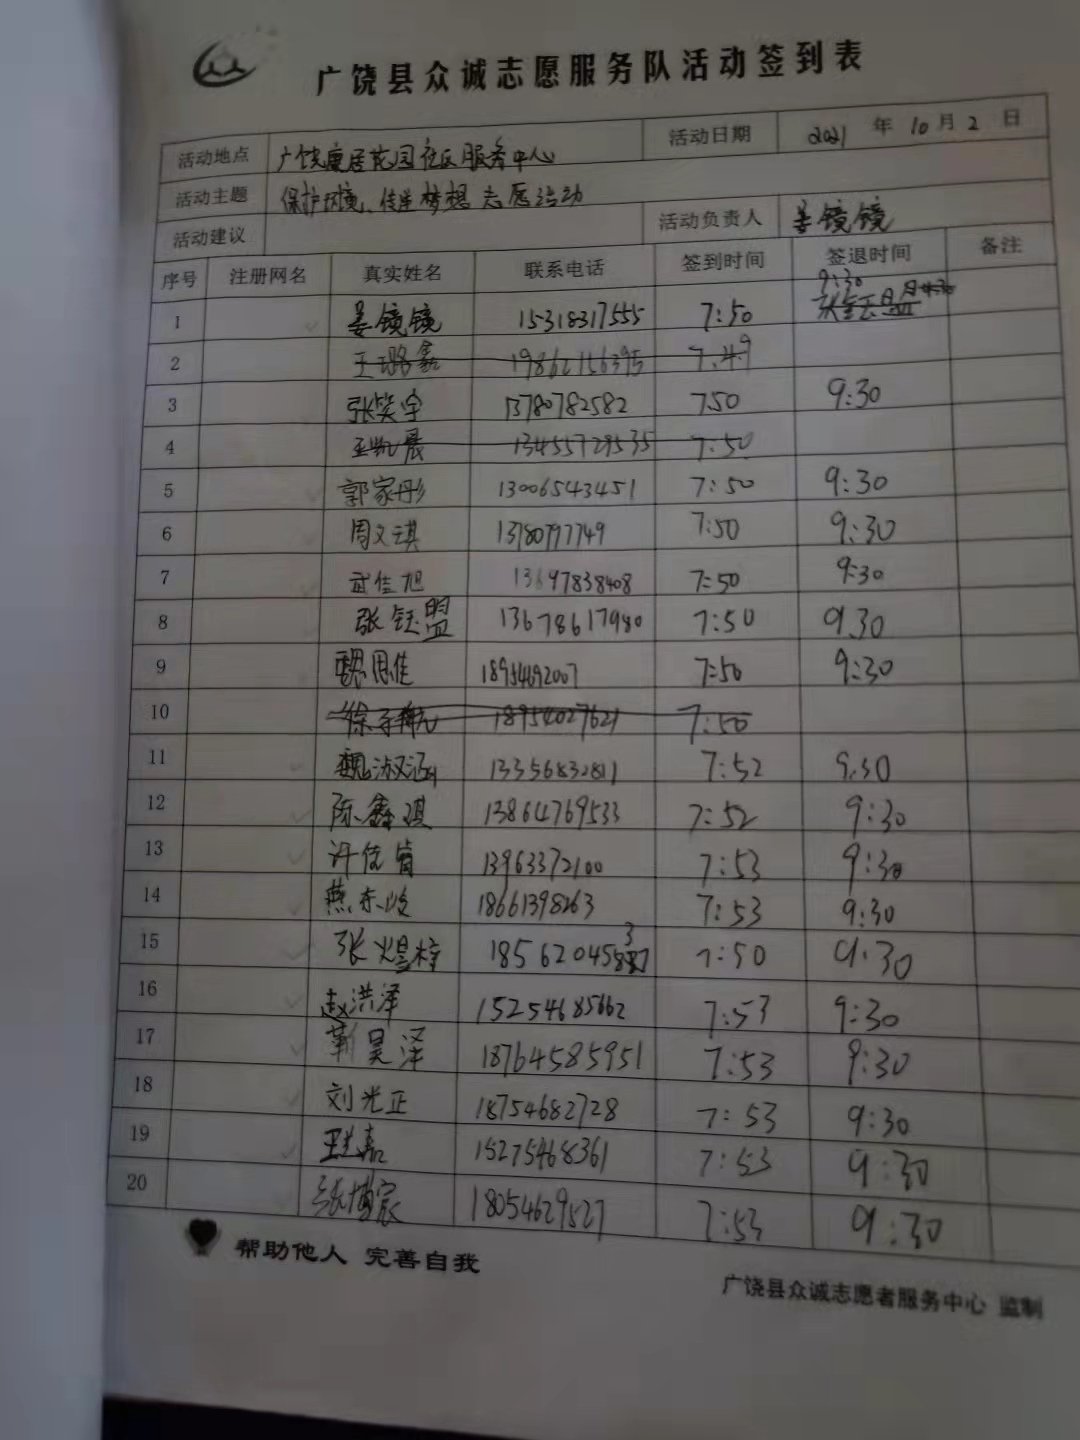 广饶县众诚志愿服务队活动签到表
活动地点 广饶康居花园社区服务中心 活动日期 2021 年 10 月 2 日
活动主题 保护环境、传递梦想志愿活动
活动建议 活动负责人 姜镜镜
序号 注册网名 真实姓名 联系电话 签到时间 签退时间 备注
1 姜镜镜 15318317555 7:50 9:30
2 王璐鑫 19862156395 7:49
3 张笑宇 13780782582 7:50 9:30
4 13455729535 7:50
5 郭家彤 1306543451 7:50 9:30
6 周文琪 13780797749 7:50 9:30
7 武佳旭 13697838408 7:50 9:30
8 张钰盟 13678617980 7:50 9:30
9 魏思佳 18954692007 7:50 9:30
10 徐子航 18954027621 7:50
11 魏淑涵 13356832811 7:52 9:30
12 陈鑫琪 13864769533 7:52 9:30
13 许依育 13963372100 7:53 9:30
14 燕东岐 18661398263 7:53 9:30
15 张煜梓 7:50 9:30
16 赵洪泽 15254685662 7:53 9:30
17 靳昊泽 18764585951 7:53 9:30
18 刘光正 18754682728 7:53 9:30
19 15275468361 7:53 9:30
20 张博宸 18054629527 7:53 9:30
帮助他人 完善自我
广饶县众诚志愿者服务中心 监制